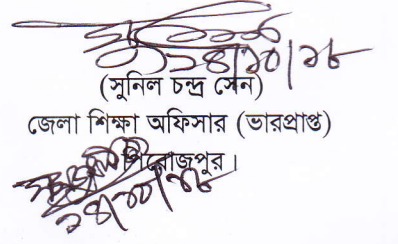 ২৪/১০/১৮
(সুনিল চন্দ্র সেন)
জেলা শিক্ষা অফিসার (ভারপ্রাপ্ত)
পিরোজপুর।
২৪/১০/১৮